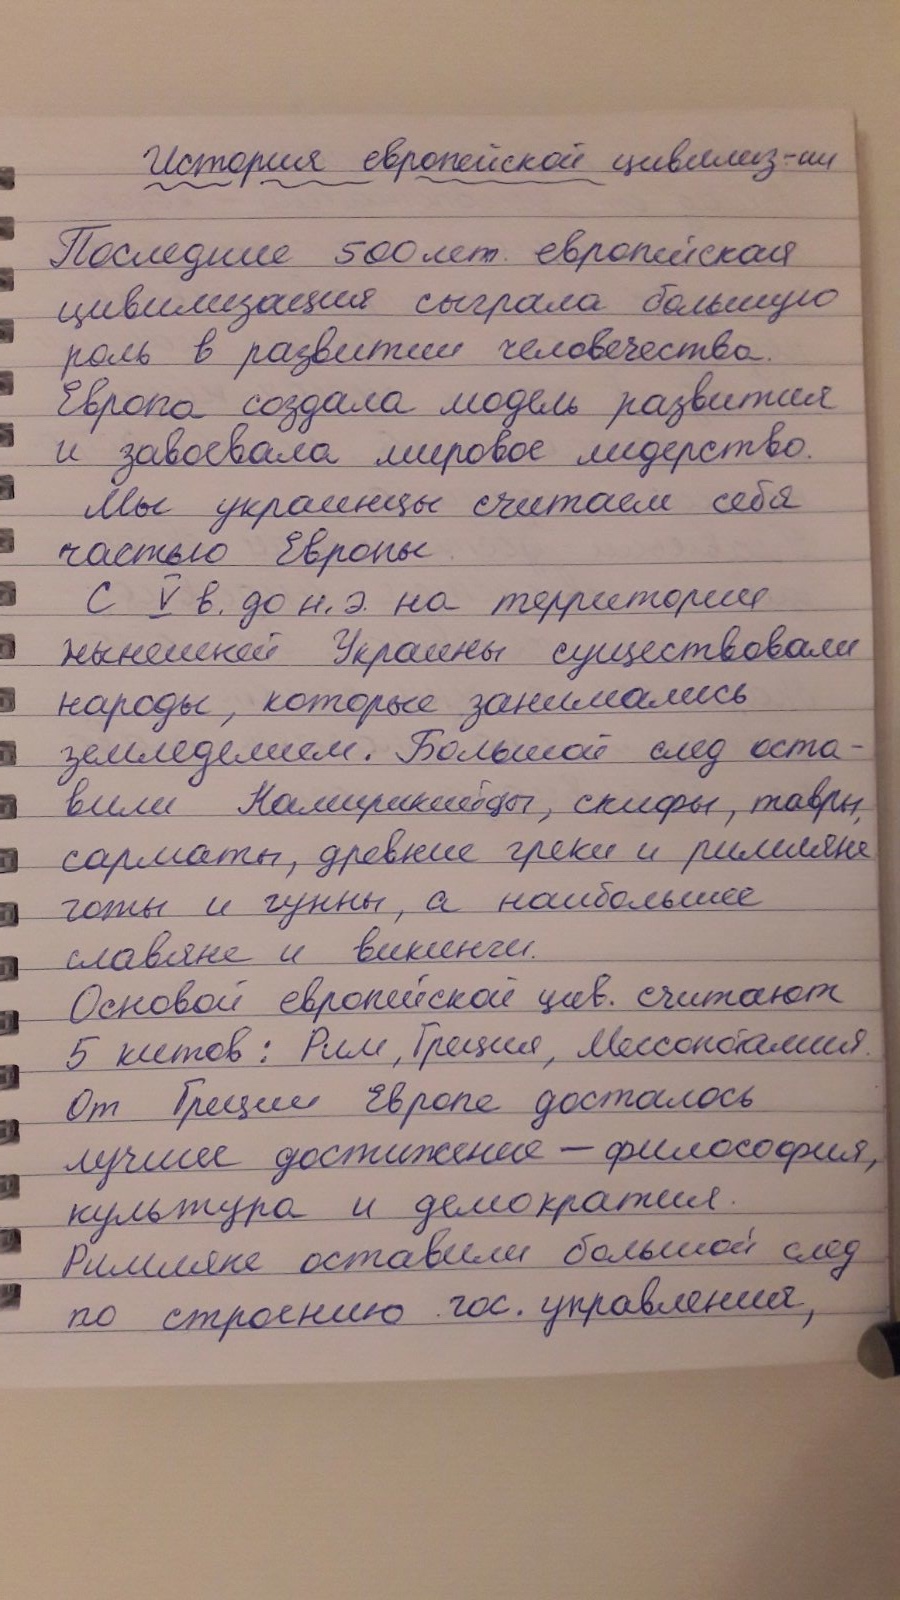 История европейской цивилиз-ии
Последние 500 лет. европейская
цивилизация сыграла большую
роль в развитии человечества.
Европа создала модель развития
и завоевала мировое лидерство.
Мы украинцы считаем себя
частью Европы.
С V в. до н.э. на территории
нынешней Украины существовали
народы, которые занимались
земледелием. Большой след оста-
вили скифы, тавры,
сарматы, древние греки и римляне
готы и гунны, а наибольшее
славяне и викинги.
Основой европейской цив. считают
5 китов: Рим, Греция, Мессопотамия.
От Греции Европе досталось
лучшее достижение — философия,
культура и демократия.
Римляне оставили большой след
по строению гос. управления,